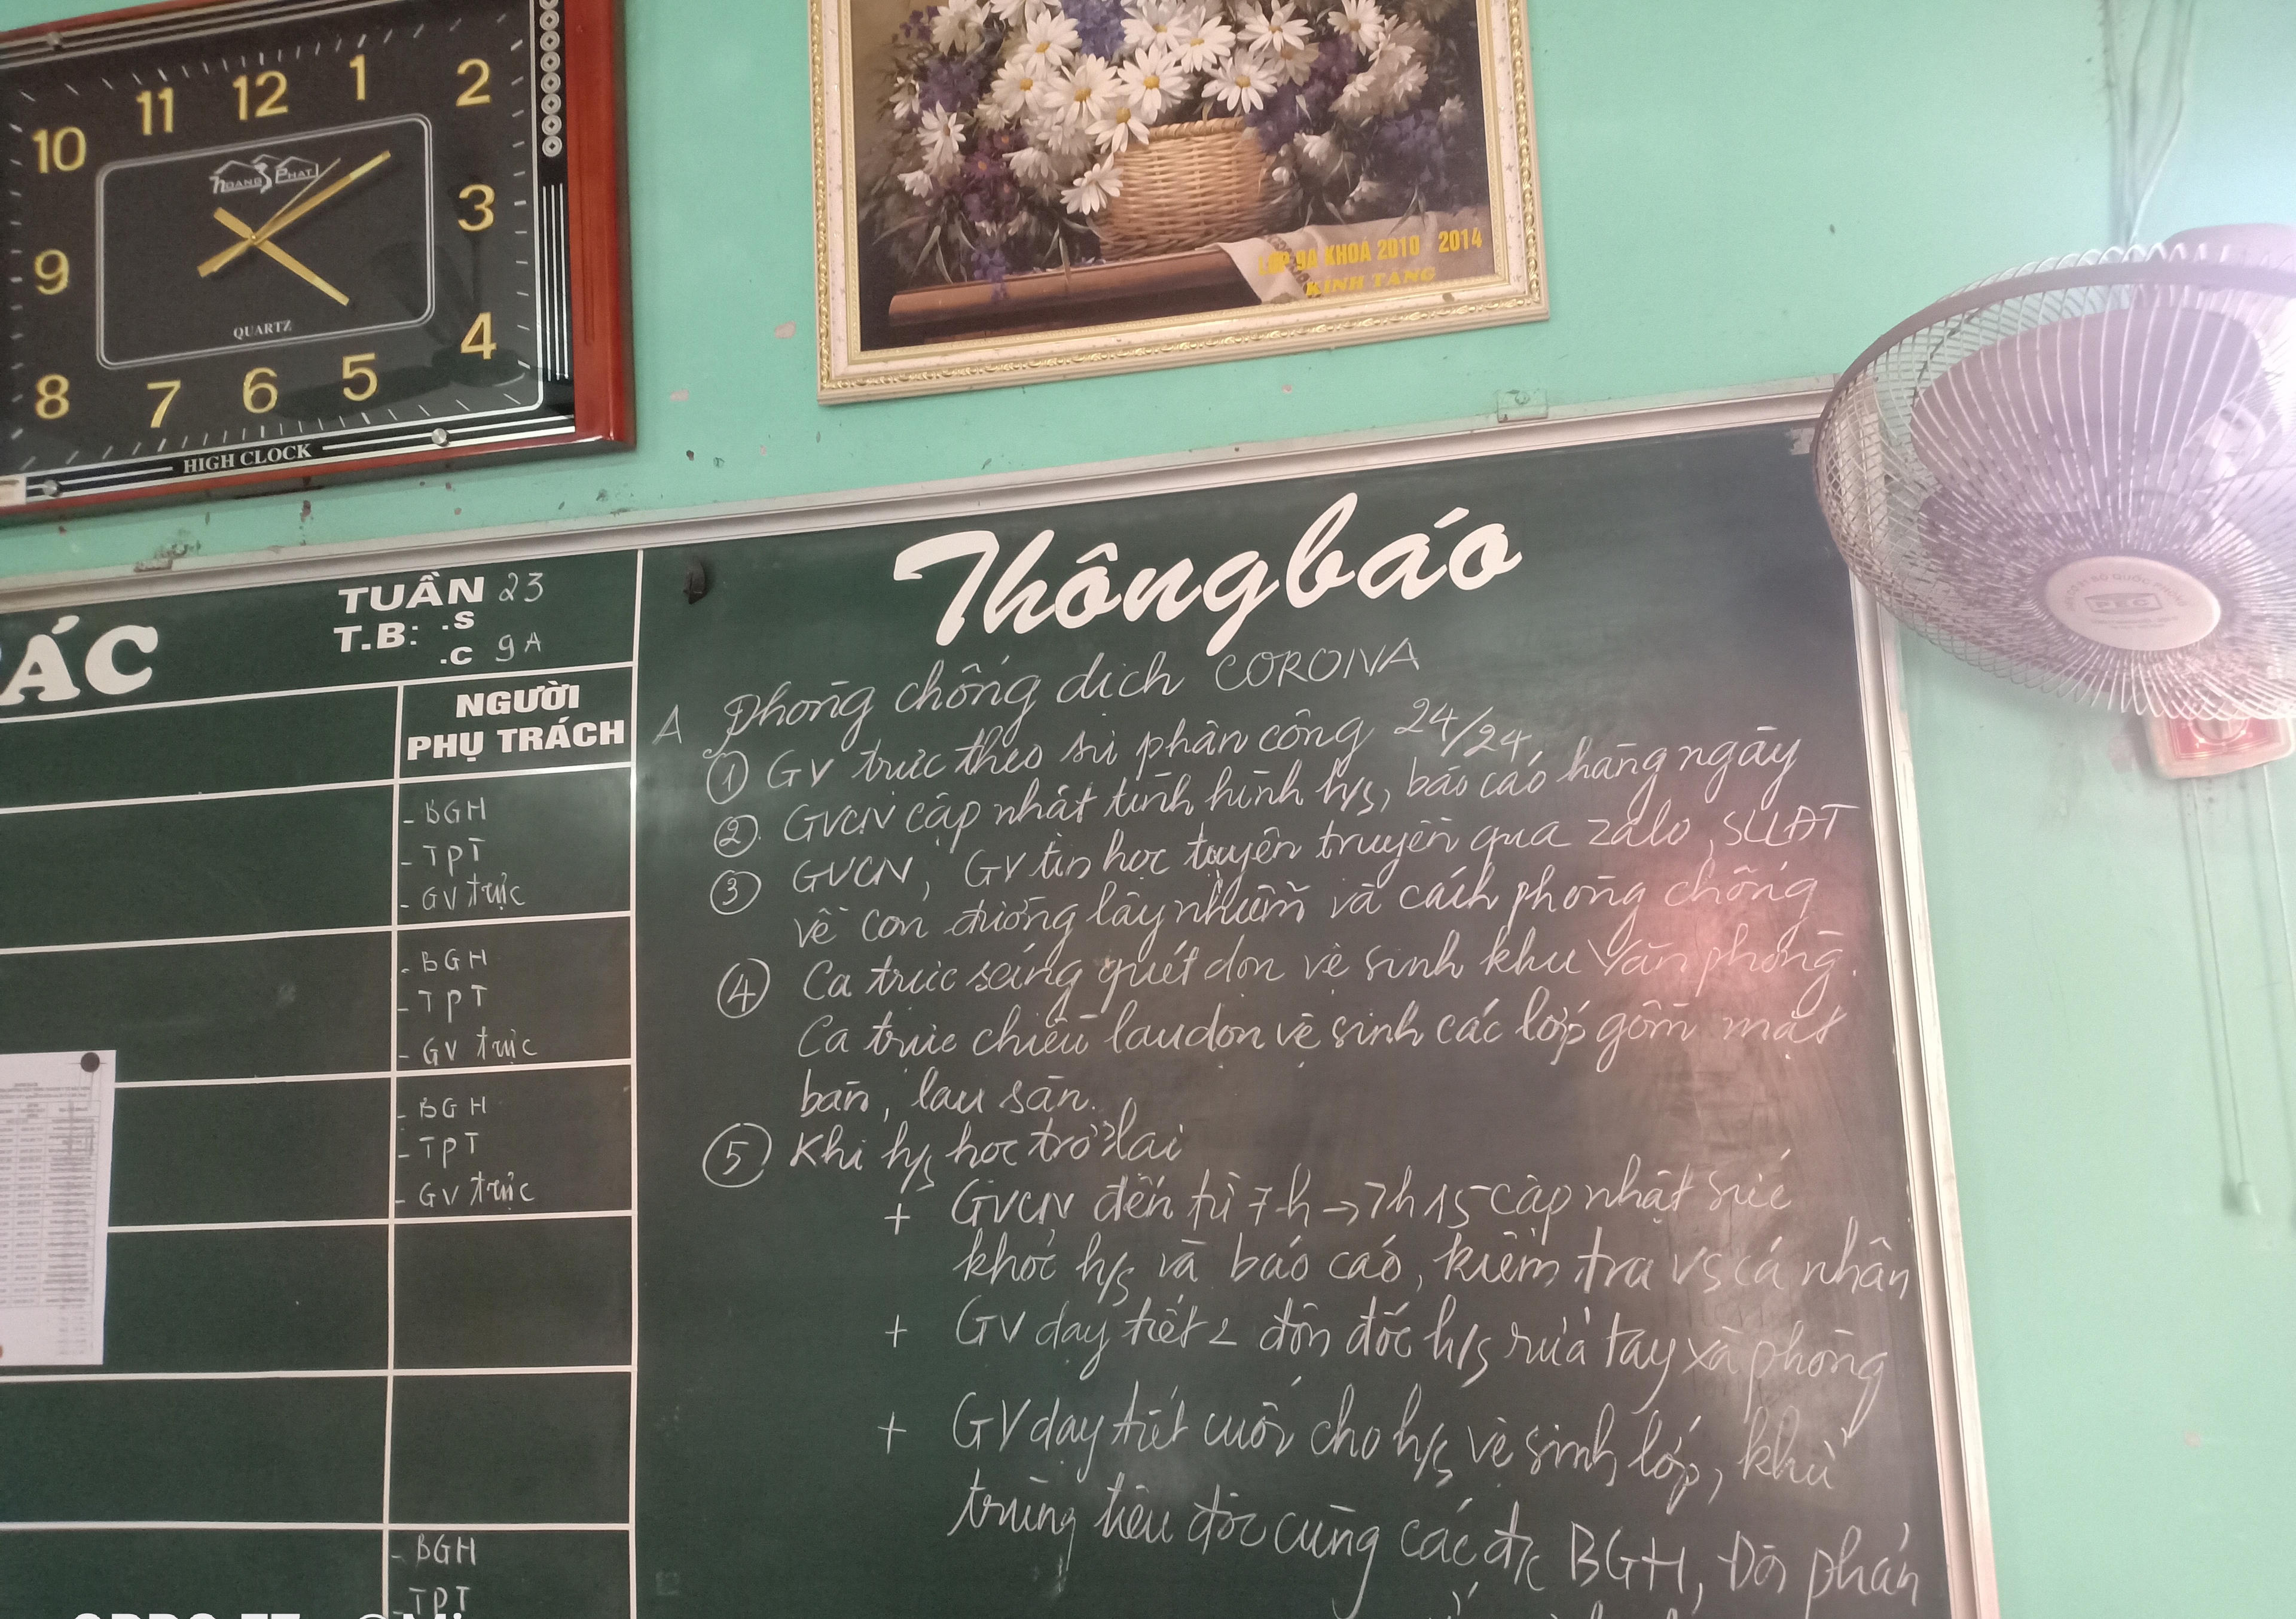 11 12 1 2
10
3
9
4
8 7 6 5
HOANG PHAT
QUARTZ
HIGH CLOCK
LỚP 9A KHOÁ 2010 2014
KÍNH TẶNG
ÁC
TUẦN 23
T.B: .S
.C 9A
NGƯỜI
PHỤ TRÁCH
- BGH
- TPT
- GV trực
- BGH
- TPT
- GV trực
- BGH
- TPT
- GV trực
- BGH
- TPT
Thông báo
A Phòng chống dịch CORONA
① GV trực theo sự phân công 24/24
②. GVCN cập nhật tình hình h/s, báo cáo hàng ngày
③ GVCN, GV tin học tuyên truyền qua zalo, SLLĐT
về con đường lây nhiễm và cách phòng chống
④ Ca trực sáng quét dọn vệ sinh khu Văn phòng.
Ca trực chiều lau dọn vệ sinh các lớp gồm mặt
bàn, lau sàn.
⑤ Khi h/s học trở lại
+ GVCN đến từ 7h → 7h15 cập nhật sức
khỏe h/s và báo cáo, kiểm tra vs cá nhân
+ GV dạy tiết 2 đôn đốc h/s rửa tay xà phòng
+ GV dạy tiết cuối cho h/s vệ sinh lớp, khử
trùng tiêu độc cùng các đ/c BGH, Đội phản
PEC